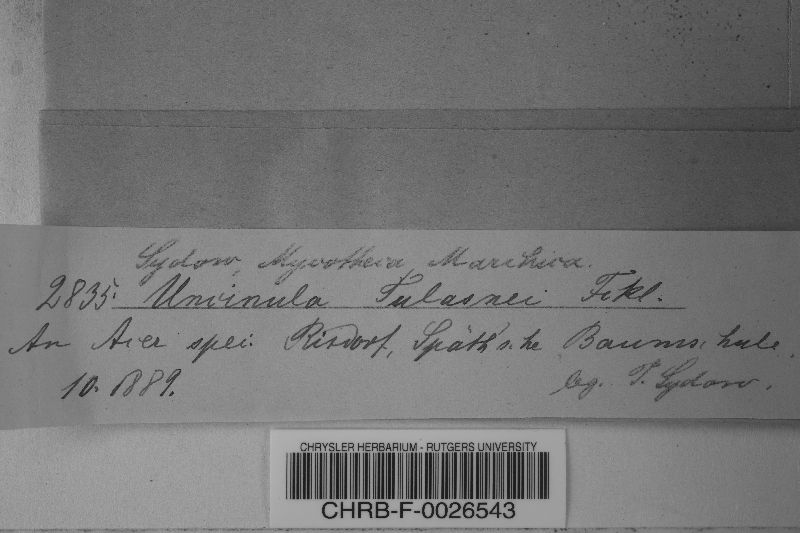 Sydow, Mycotheca Marchica.
2835. Uncinula Tulasnei Fckl.
An Acer spec. Rixdorf, Späth'sche Baumschule.
10. 1889. leg. P. Sydow.
CHRYSLER HERBARIUM - RUTGERS UNIVERSITY
CHRB-F-0026543